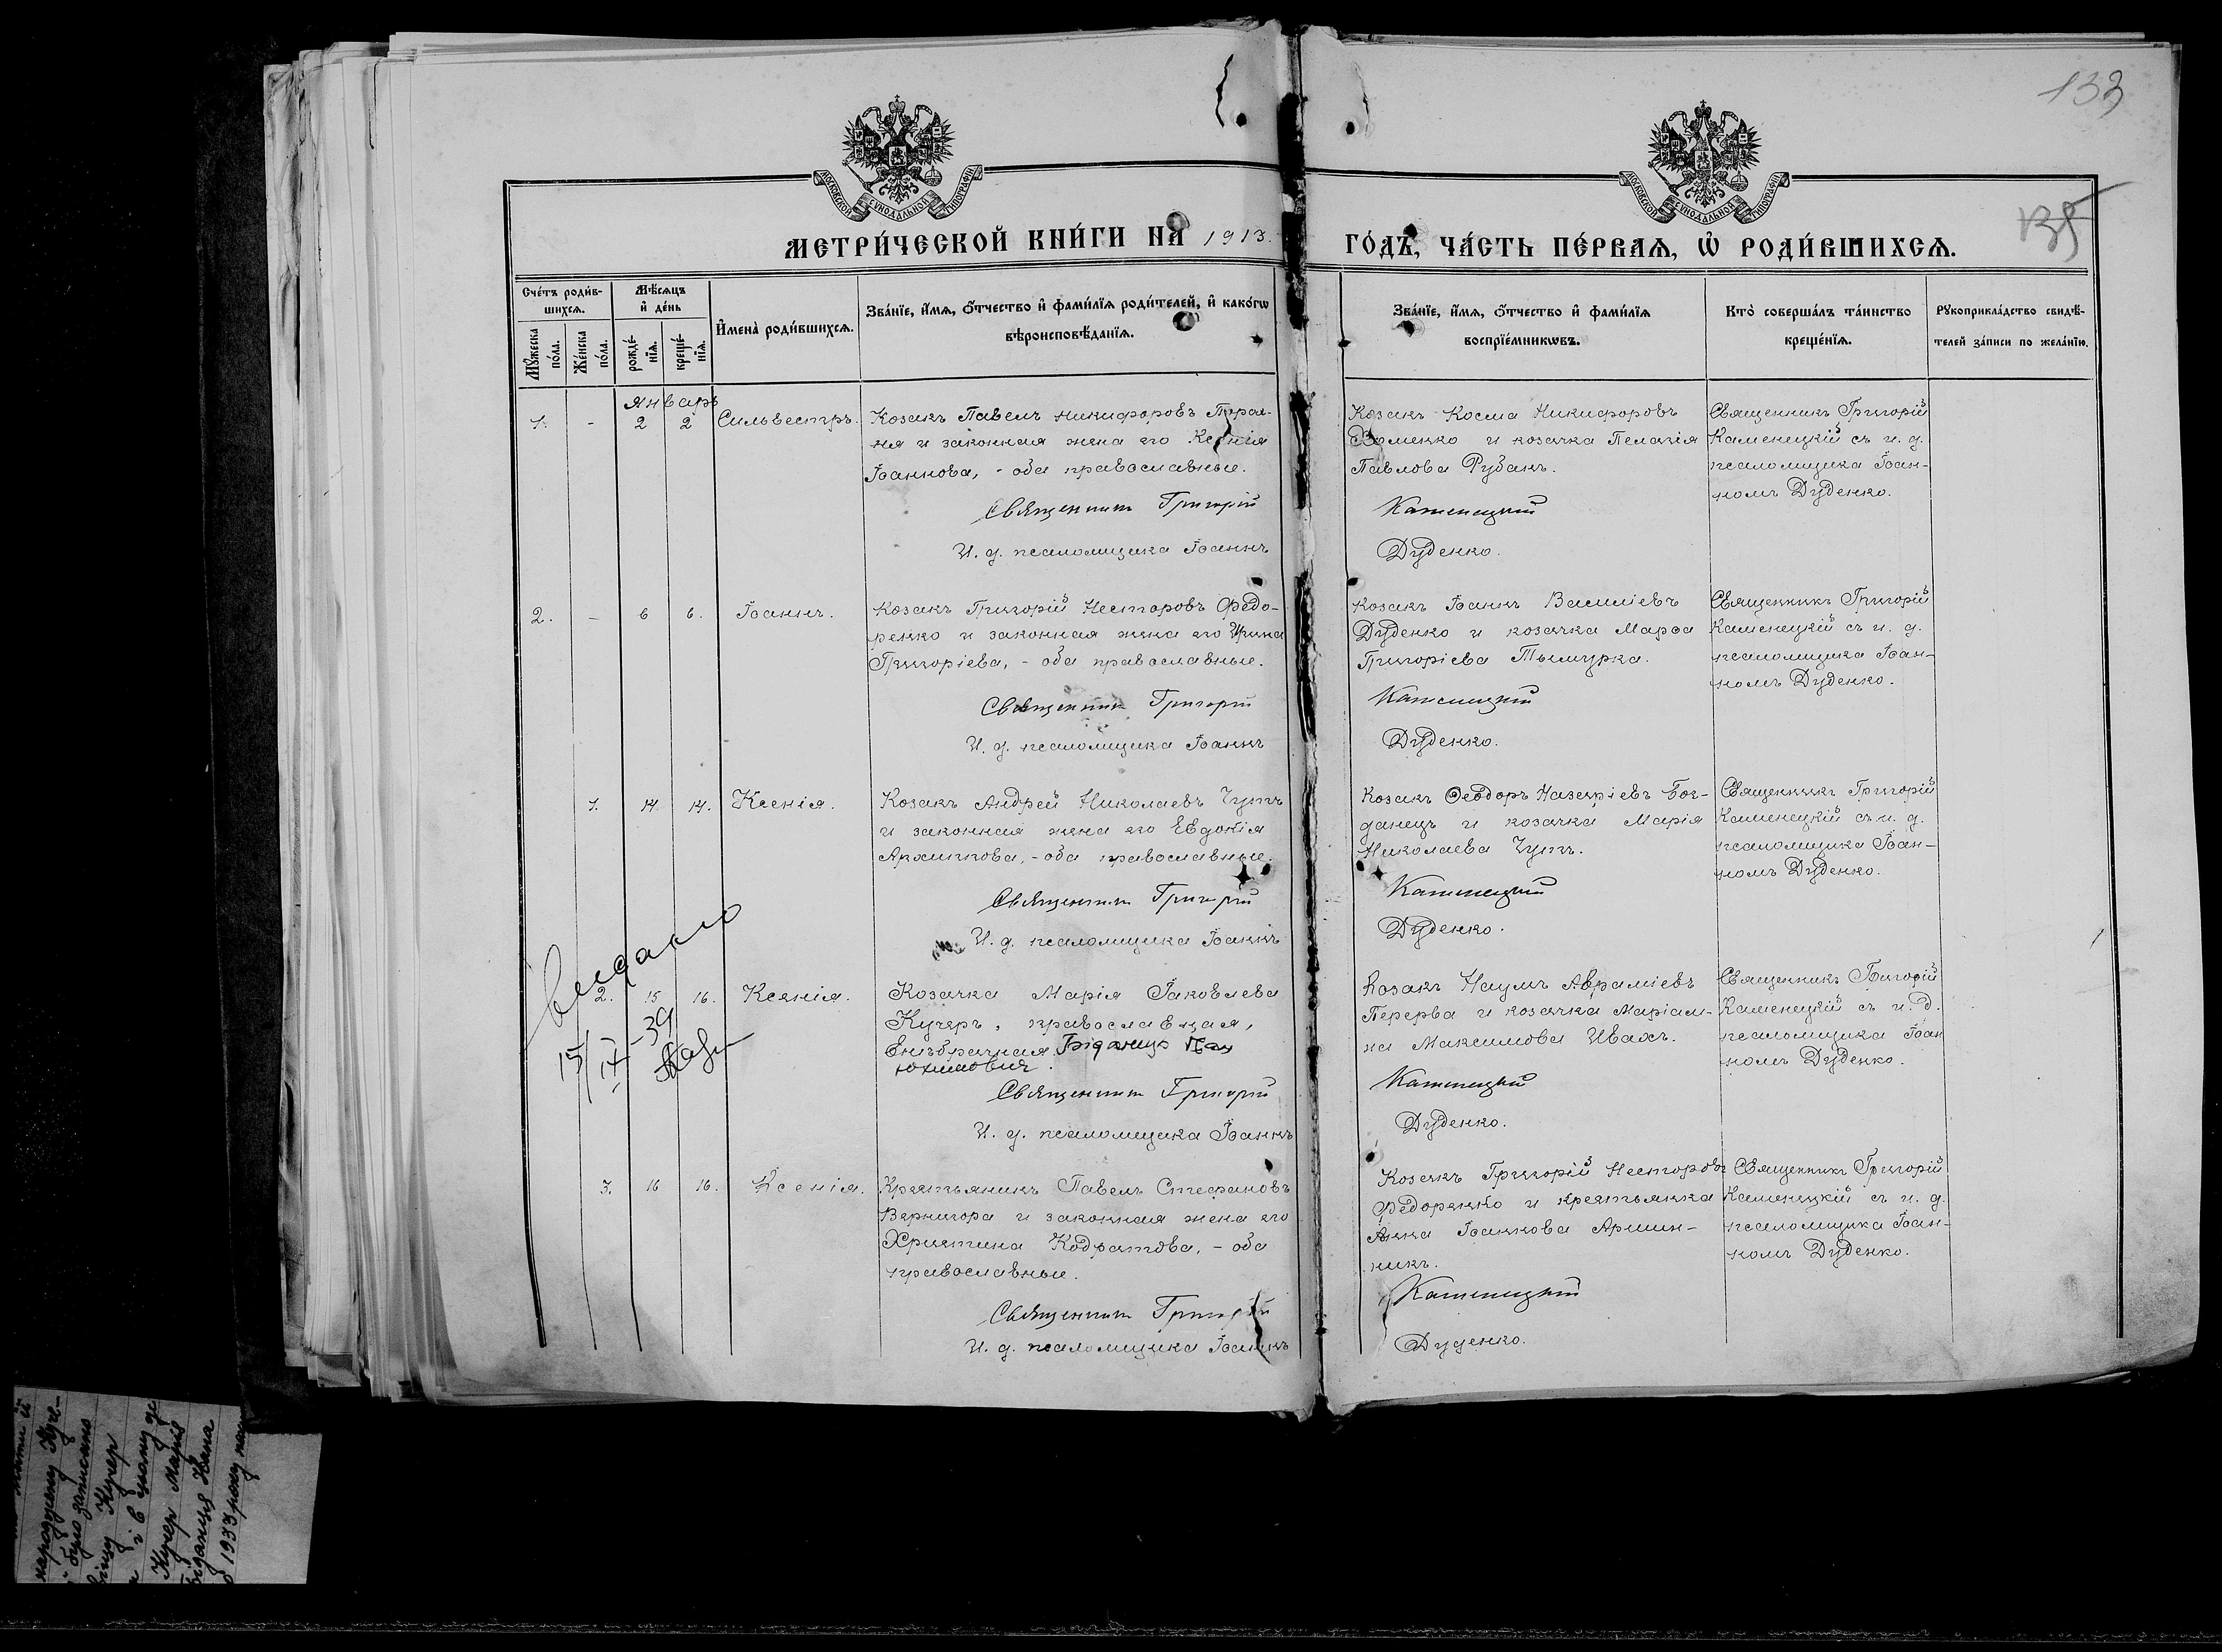 133
135
МОСКОВСКОЙ СѴНОДАЛЬНОЙ ТИПОГРАФІИ
МОСКОВСКОЙ СѴНОДАЛЬНОЙ ТИПОГРАФІИ
МЕТРИ́ЧЕСКОЙ КНИ́ГИ НА 1913. ГО́ДЪ, ЧА́СТЬ ПЕ́РВАѦ, Ѡ РОДИ́ВШИХСѦ.
Сче́тъ роди́в-
шихсѧ.
Мꙋ́жеска по́ла.
Же́нска по́ла.
Мѣ́сѧцъ и де́нь
рожде́-
нїѧ.
креще́-
нїѧ.
И҆мена̀ роди́вшихсѧ.
Зва́нїе, и҆́мѧ, ѻ҆́тчество и҆ фами́лїѧ роди́телей, и҆ како́гѡ
вѣроисповѣ́данїѧ.
Зва́нїе, и҆́мѧ, ѻ҆́тчество и҆ фами́лїѧ
воспрїе́мникѡвъ.
Кто̀ соверша́лъ та́инство
креще́нїѧ.
Рꙋкоприкла́дство свидѣ́-
телей за́писи по жела́нїю.
Январь
1. - 2 2 Сильвестръ.
Козакъ Павелъ Никифоровъ
и законная жена его Ксенія
Іоаннова, - оба православные.
Священник Григорій
И. д. псаломщика Іоаннъ
Козакъ Косма Никифоровъ
Фоменко и козачка Пелагія
Павлова Рубанъ.
Каменецкий
Дуденко.
Священникъ Григорій
Каменецкій съ и. д.
псаломщика Іоан-
номъ Дуденко.
2. - 6 6. Іоаннъ.
Козакъ Григорій Несторовъ Федо-
ренко и законная жена его Ирина
Григоріева, - оба православные.
Священник Григорий
И. д. псаломщика Іоаннъ
Козакъ Іоаннъ Василіевъ
Дуденко и козачка Марѳа
Григоріева Тымурка.
Каменецкий
Дуденко.
Священникъ Григорій
Каменецкій съ и. д.
псаломщика Іоан-
номъ Дуденко.
1. 14 14. Ксенія.
Козакъ Андрей Николаевъ Чупъ
и законная жена его Евдокія
Архиппова, - оба православные.
Священник Григорий
И. д. псаломщика Іоаннъ
Козакъ Ѳеодоръ Назаріевъ Бог-
данецъ и козачка Марія
Николаева Чупъ.
Каменецкий
Дуденко.
Священникъ Григорій
Каменецкій съ и. д.
псаломщика Іоан-
номъ Дуденко.
видано
15/IX-39
2. 15 16. Ксенія.
Козачка Марія Іаковлева
Кучеръ, православная,
внѣбрачная. Біданця
Юхимович.
Священник Григорий
И. д. псаломщика Іоаннъ
Козакъ Наумъ Авраміевъ
Перерва и козачка Маріам-
на Максимова Ивахъ.
Каменецкий
Дуденко.
Священникъ Григорій
Каменецкій съ и. д.
псаломщика Іоан
номъ Дуденко.
3. 16 16. Ксенія.
Крестьянинъ Павелъ Стефановъ
Вернигора и законная жена его
Христина Кодратова, - оба
православные.
Священник Григорий
И. д. псаломщика Іоаннъ
Козакъ Григорій Несторовъ
Федоренко и крестьянка
Анна Іоаннова Аршин-
никъ.
Каменецкий
Дуденко.
Священникъ Григорій
Каменецкій съ и. д.
псаломщика Іоан-
номъ Дуденко.
народжену Куче-
було записано
Кучер
і в
Кучер Марія
Біданця Кана
1933 року